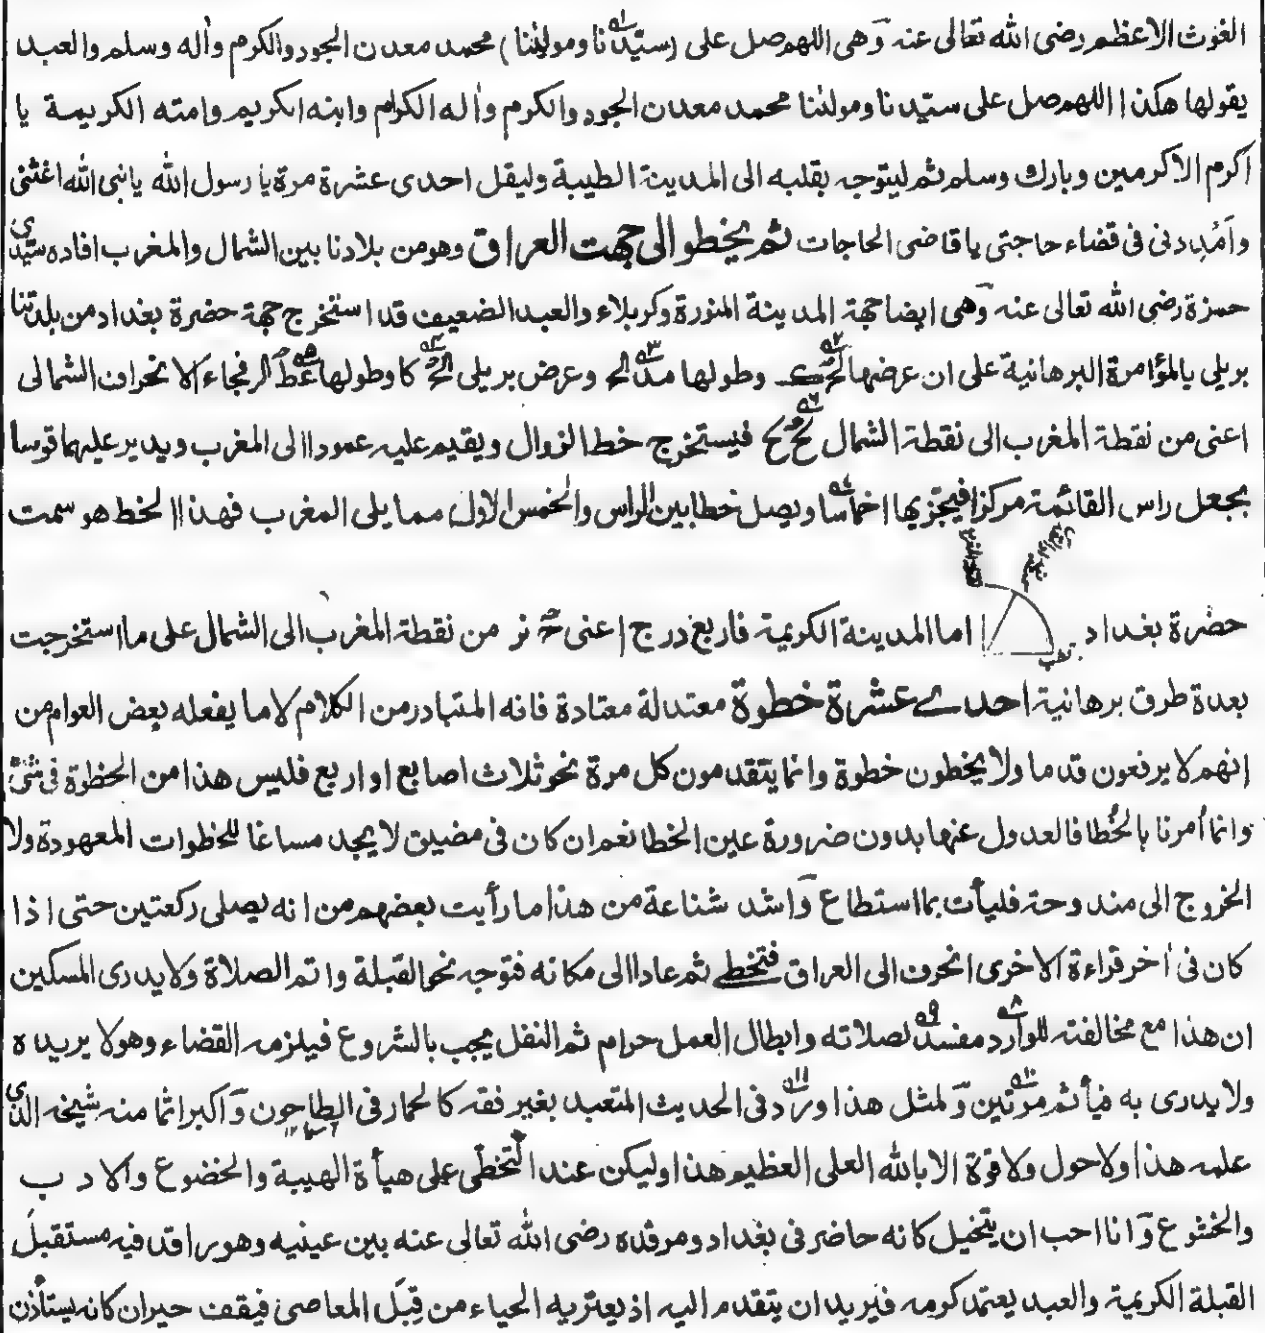 الغوث الاعظم رضى الله تعالى عنه وهى اللهم صل على (سيّدنا ومولٰنا) محمد معدن الجود والكرم واٰله وسلم والعبد
يقولها هكذا اللهم صل على سيّدنا ومولٰنا محمد معدن الجود والكرم واٰله الكرام وابنه الكريم وامته الكريمة يا
اكرم الاكرمين وبارك وسلم ثم ليتوجه بقلبه الى المدينة الطيبة وليقل احدى عشرة مرة يا رسول الله يا نبى الله اغثنى
وامددنى فى قضاء حاجتى يا قاضى الحاجات ثم يخطو الى جهت العراق وهو من بلادنا بين الشمال والمغرب افاده سيّدى
حمزة رضى الله تعالى عنه وهى ايضا جهة المدينة المنورة وكربلاء والعبد الضعيف قد استخرج جهة حضرة بغداد من بلدتنا
بريلى بالمؤامرة البرهانية على ان عرضها وطولها وعرض بريلى وطولها فجاء الانحراف الشمالى
اعنى من نقطة المغرب الى نقطة الشمال فيستخرج خط الزوال ويقيم عليه عمودا الى المغرب ويدير عليهما قوسا
بجعل راس القائمة مركزا فيجزيها اخماسا ويصل خطا بين الراس والخمس الاول مما يلى المغرب فهذا الخط هو سمت
حضرة بغداد اما المدينة الكريمة فاربع درج اعنى من نقطة المغرب الى الشمال على ما استخرجت
بعدة طرق برهانية احدے عشرة خطوة معتدلة معتادة فانه المتبادر من الكلام لا ما يفعله بعض العوام من
انهم لا يرفعون قدما ولا يخطون خطوة وانما يتقدمون كل مرة نحو ثلاث اصابع او اربع فليس هذا من الخطوة فى شئ
وانما أمرنا بالخُطا فالعدول عنها بدون ضرورة عين الخطا نعم ان كان فى مضيق لا يجد مساغا للخطوات المعهودة ولا
الخروج الى مندوحة فليأت بما استطاع واشد شناعة من هذا ما رأيت بعضهم من انه يصلى ركعتين حتى اذا
كان فى اٰخر قراءة الاخرى انحرف الى العراق فتخطے ثم عادا الى مكانه فتوجه نحو القبلة واتم الصلاة ولا يدرى المسكين
ان هذا مع مخالفته للوارد مفسد لصلاته وابطال العمل حرام ثم النفل يجب بالشروع فيلزمه القضاء وهو لا يريده
ولا يدرى به فيأثم مرّتين ولمثل هذا ورد فى الحديث المتعبد بغير فقه كالحمار فى الطاحون واكبر اثما منه شيخه الذى
علمه هذا ولا حول ولا قوة الا بالله العلى العظيم هذا وليكن عند التخطّى على هيأة الهيبة والخضوع والادب
والخشوع وانا احب ان يتخيل كانه حاضر فى بغداد ومرقده رضى الله تعالى عنه بين عينيه وهو راقد فيه مستقبل
القبلة الكريمة والعبد يعتمد كرمه فيريد ان يتقدم اليه اذ يعتريه الحياء من قِبَل المعاصى فيقف حيران كانه يستأذن